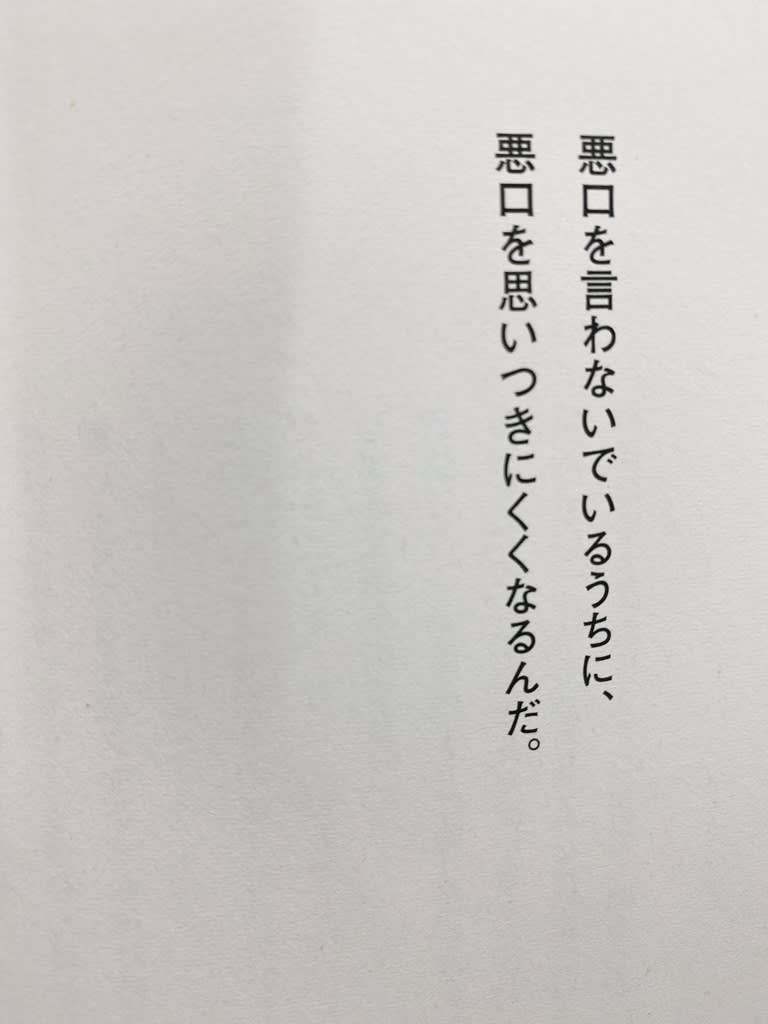 悪口を言わないでいるうちに、
悪口を思いつきにくくなるんだ。